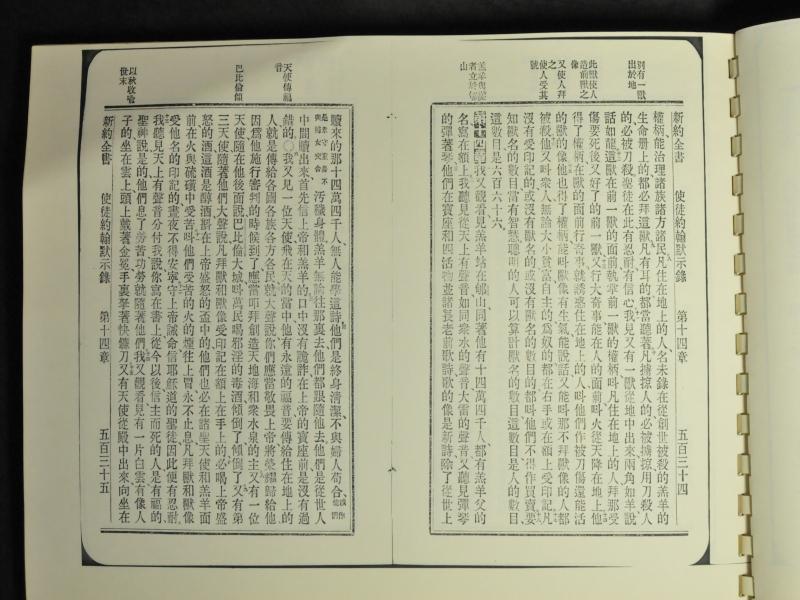 別有一獸
出於地
此獸使人
造前獸之
像
又使人拜
之
使人受其
號
羔羊與聖
山
新約全書 使徒約翰默示錄 第十四章 五百三十四
權柄能治理諸族諸方諸民凡住在地上的人名未錄在從創世被殺的羔羊的
生命冊上的都必拜這獸凡有耳的都當聽著凡擄掠人的必被擄掠用刀殺人
的必被刀殺聖徒在此有忍耐有信心我又見有一獸從地中出來兩角如羊說
話如龍這獸在前一獸的面前執掌前一獸的權柄呌凡住在地上的人拜那受
傷要死後又好了的前一獸又行大奇事能在人的面前呌火從天降在地上他
得了權柄在獸的面前行奇事就誘惑住在地上的人呌他們作被刀傷還能活
的獸的像他也得了權柄能呌獸像有生氣能說話又能呌那不拜獸像的人都
被殺他又呌衆人無論大小貧富自主的爲奴的都在右手或在額上受印記凡
沒有受印記的或沒有獸名的或沒有獸名的數目的都呌他們不得作買賣要
知獸名的數目當有智慧聰明的人可以算計獸名的數目這數目是人的數目
這數目是六百六十六
第十四章我又觀看見羔羊站在郇山同著他有十四萬四千人都有羔羊父的
名寫在額上我聽見從天上有聲音如同衆水的聲音大雷的聲音又聽見彈琴
的彈著琴他們在寶座和四活物並諸長老前歌詩歌的像是新詩除了從世上
天使傳福
音
巴比倫傾
以秋收喻
世末
贖來的那十四萬四千人無人能學這詩他們是終身清潔不與婦人苟合
汚穢身體羔羊無論往那裏去他們都跟隨他去他們是從世人
中間贖出來首先信上帝和羔羊的口中沒有詭詐在上帝的寶座前是沒有過
錯的〇我又見一位天使飛在天的當中他有永遠的福音要傳給住在地上的
人就是傳給各國各族各方各民就大聲說你們應當敬畏上帝將榮耀歸給他
因爲他施行審判的時候到了應當叩拜創造天地海和衆水泉的主又有一位
天使隨在他後面說巴比倫大城呌萬民喝邪淫的毒酒傾倒了傾倒了又有第
三天使隨著他們大聲說凡拜獸和獸像受印記在額上在手上的必喝上帝盛
怒的酒這酒是醇酒斟在上帝盛怒的盃中的他們也必在諸聖天使和羔羊面
前在火與硫磺中受苦呌他們受苦的火的煙往上冒永不止息凡拜獸和獸像
受他名的印記的晝夜不得安寧守上帝誡命信耶穌道的聖徒因此便有忍耐
我聽見天上有聲音分付我說你寫在書上從今以後信主而死的人是有福的
聖神說是的他們息了勞苦功勞就隨著他們我又觀看見有一片白雲有像人
子的坐在雲上頭上戴著金冕手裏拏著快鐮刀又有天使從殿中出來向坐在
新約全書 使徒約翰默示錄 第十四章 五百三十五